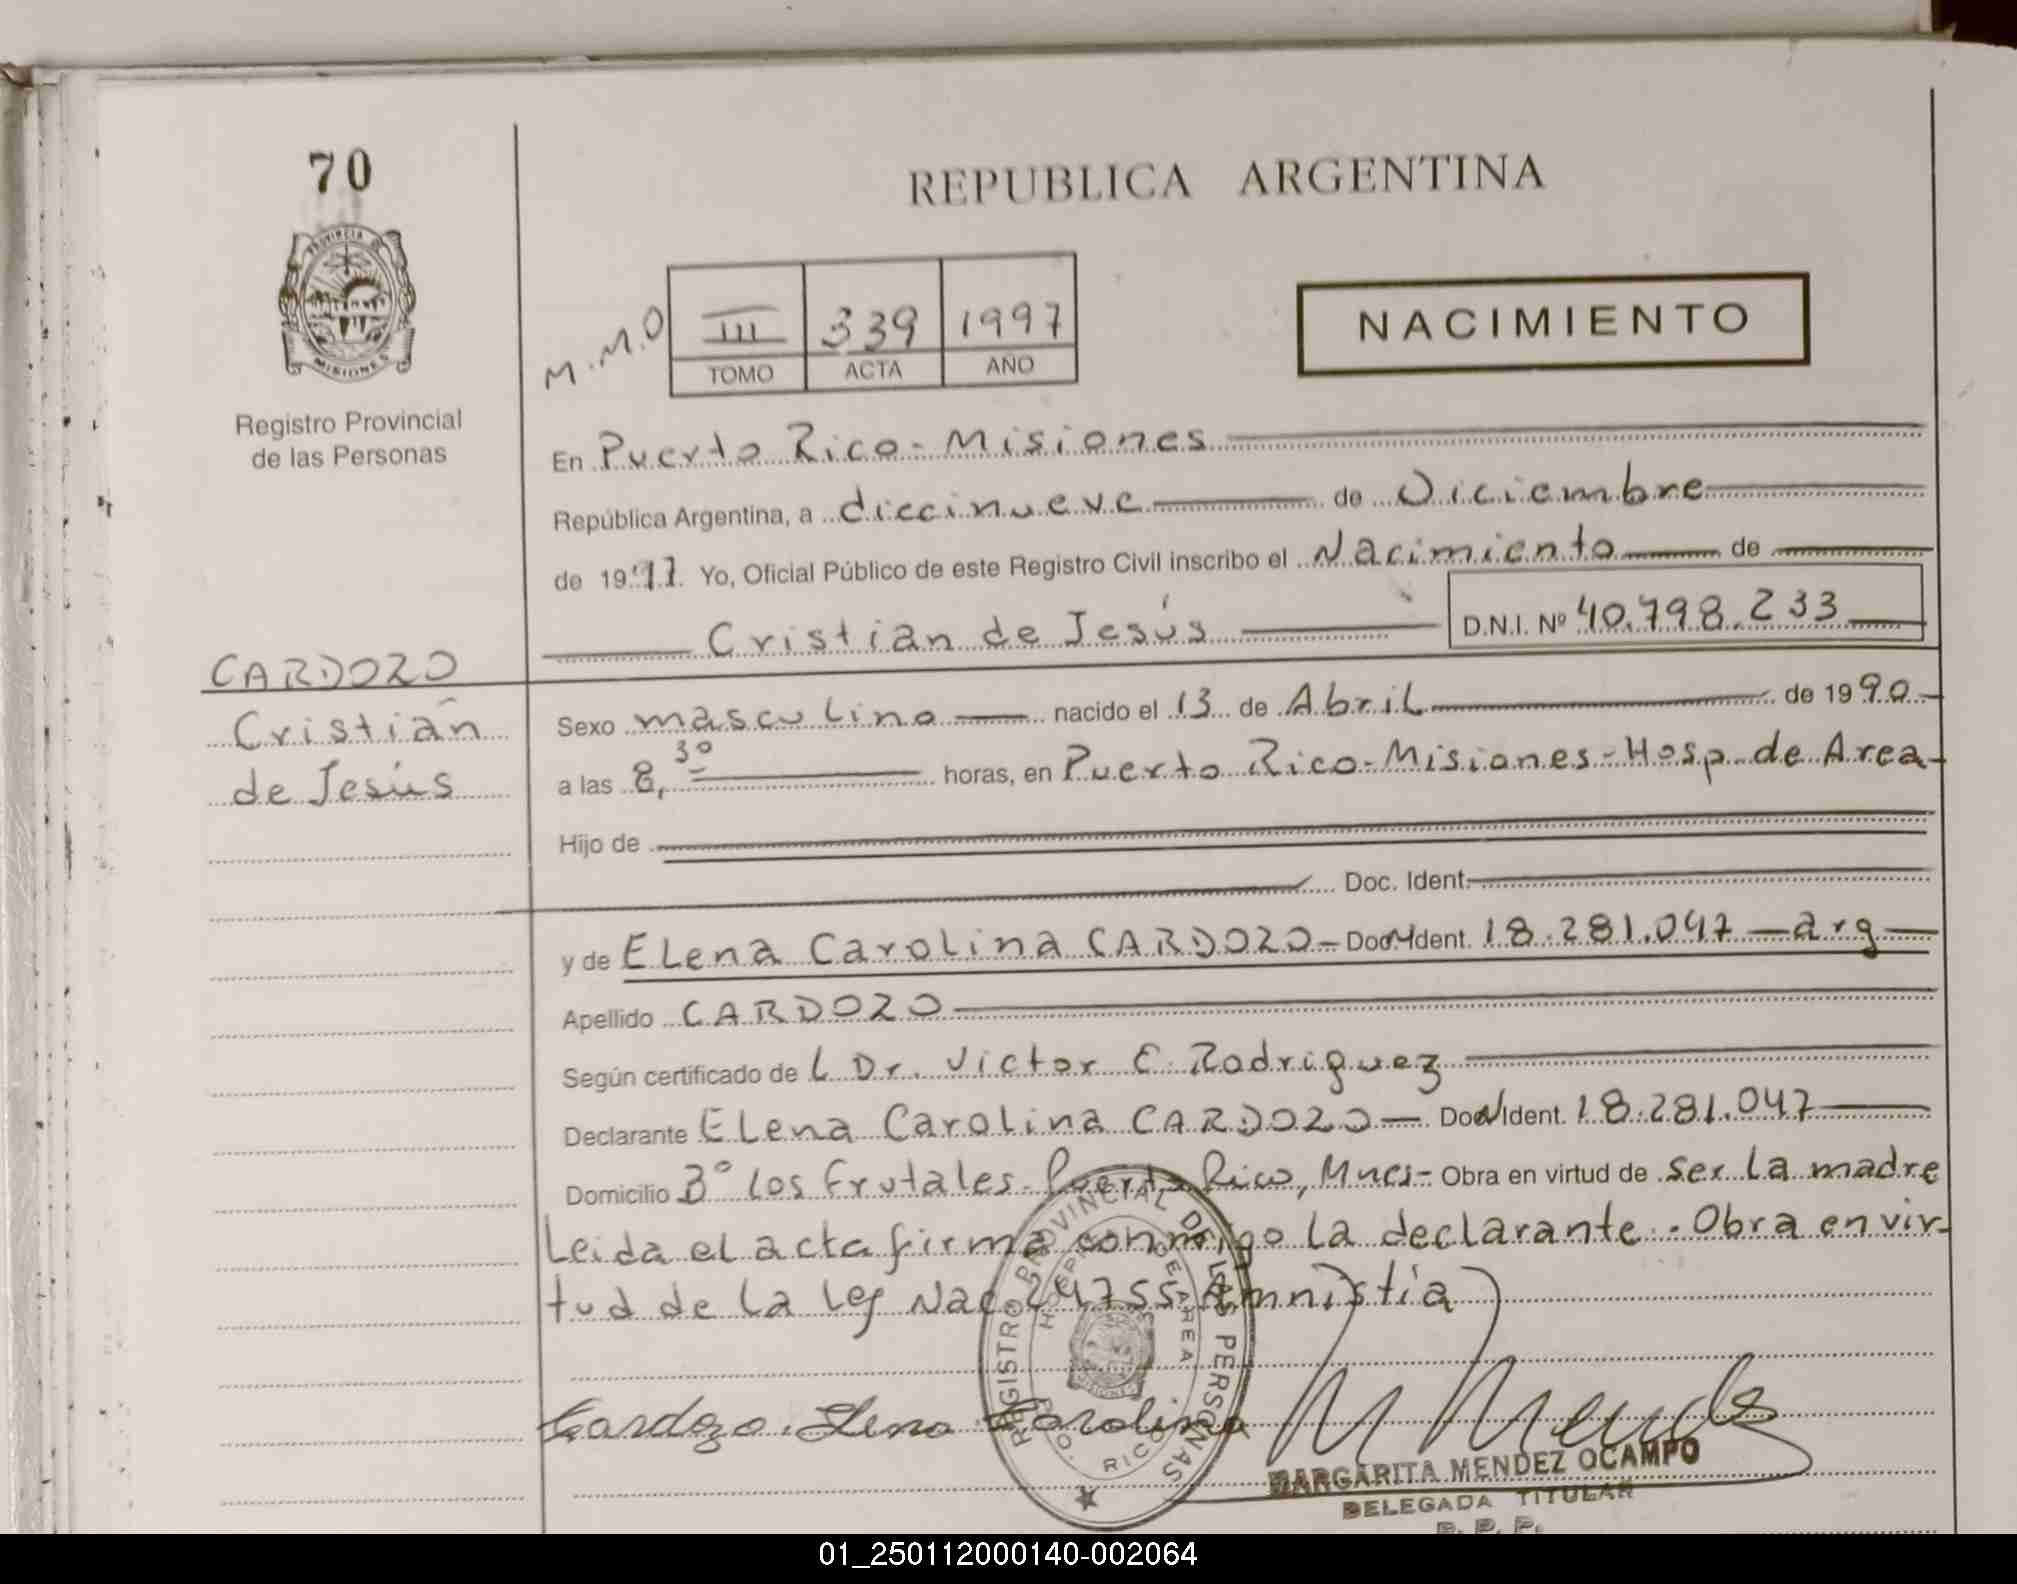 70
PROVINCIA DE
MISIONES
Registro Provincial
de las Personas
REPUBLICA ARGENTINA
M.M.O
III 339 1997
TOMO ACTA AÑO
NACIMIENTO
En Puerto Rico - Misiones
República Argentina, a diecinueve de Diciembre
de 1997. Yo, Oficial Público de este Registro Civil inscribo el Nacimiento de
Cristian de Jesús D.N.I. Nº 40.798.233
CARDOZO
Cristian
de Jesús
Sexo masculino nacido el 13 de Abril de 1990
a las 8,30 horas, en Puerto Rico - Misiones - Hosp. de Area
Hijo de
Doc. Ident.
y de Elena Carolina CARDOZO - Doc. Ident. 18.281.047 - arg
Apellido CARDOZO
Según certificado de L Dr. Victor E. Rodriguez
Declarante Elena Carolina CARDOZO - Doc. Ident. 18.281.047
Domicilio Bº Los Frutales - Puerto Rico, Mnes - Obra en virtud de ser la madre
Leida el acta firma conmigo la declarante. Obra en vir-
tud de la Ley Nac. 24755 Amnistia)
REGISTRO PROVINCIAL DE LAS PERSONAS
HOSPITAL DE AREA
PTO. RICO
MISIONES
Cardozo Elena Carolina
MARGARITA MENDEZ OCAMPO
DELEGADA TITULAR
R. P. P.
01_250112000140-002064